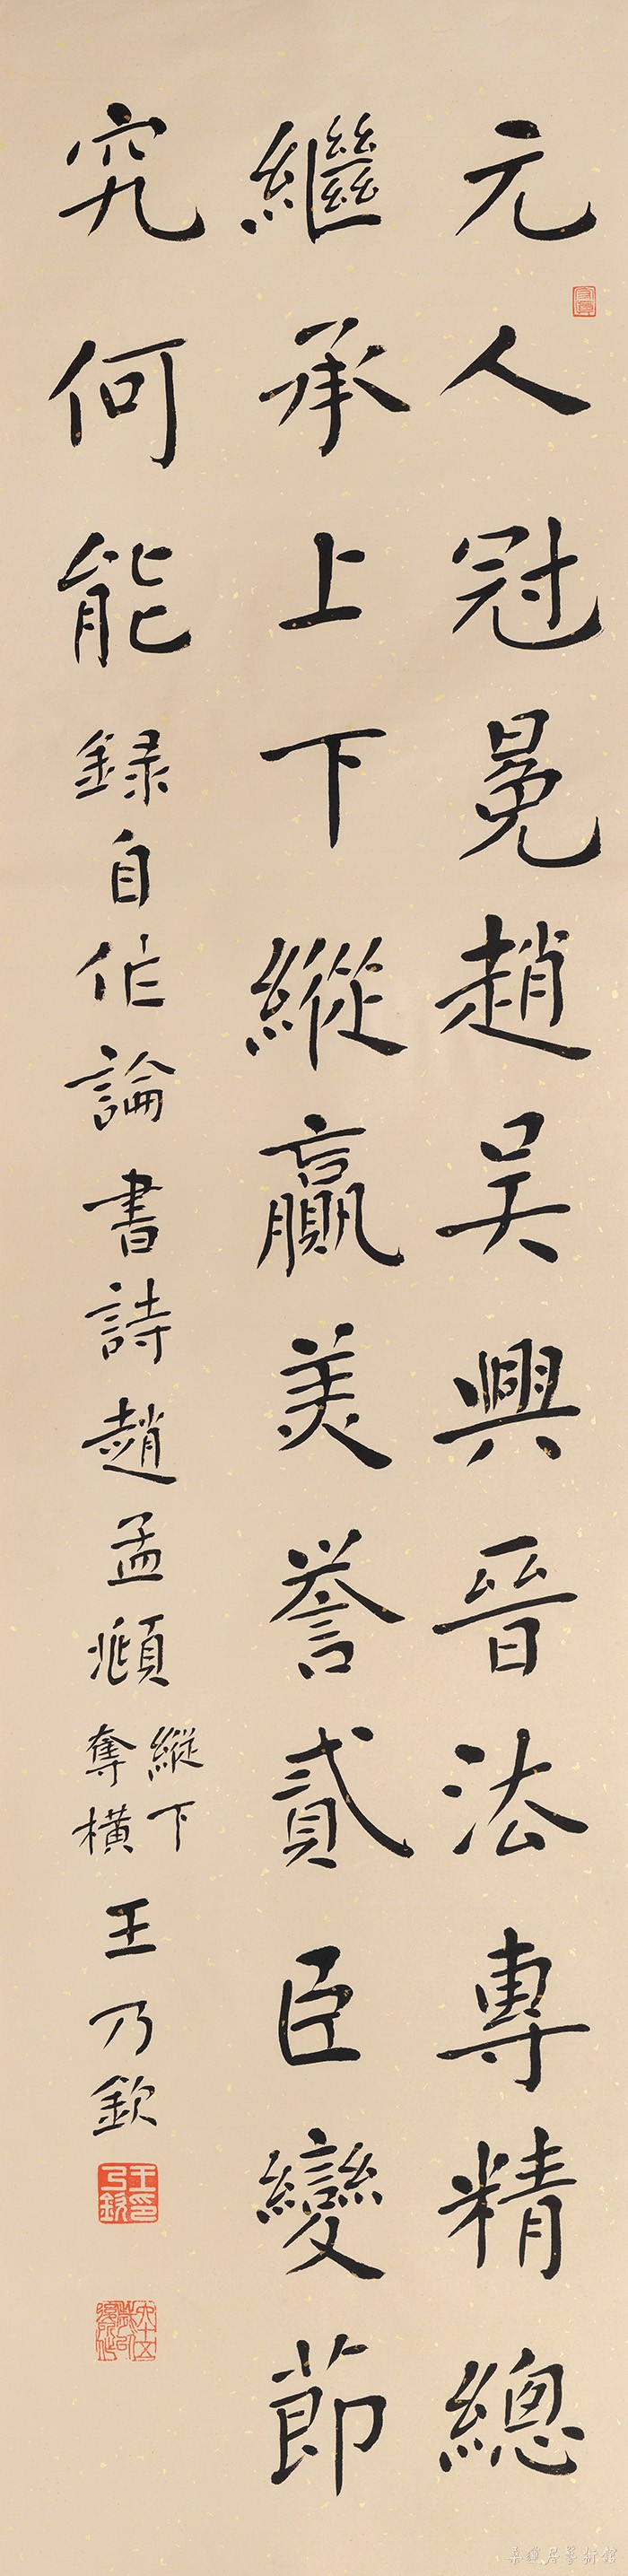 元人冠冕趙吴興晉法專精總
繼承上下縱贏美譽貳臣變節
究何能録自作論書詩趙孟頫
縱下
奪橫
王乃欽